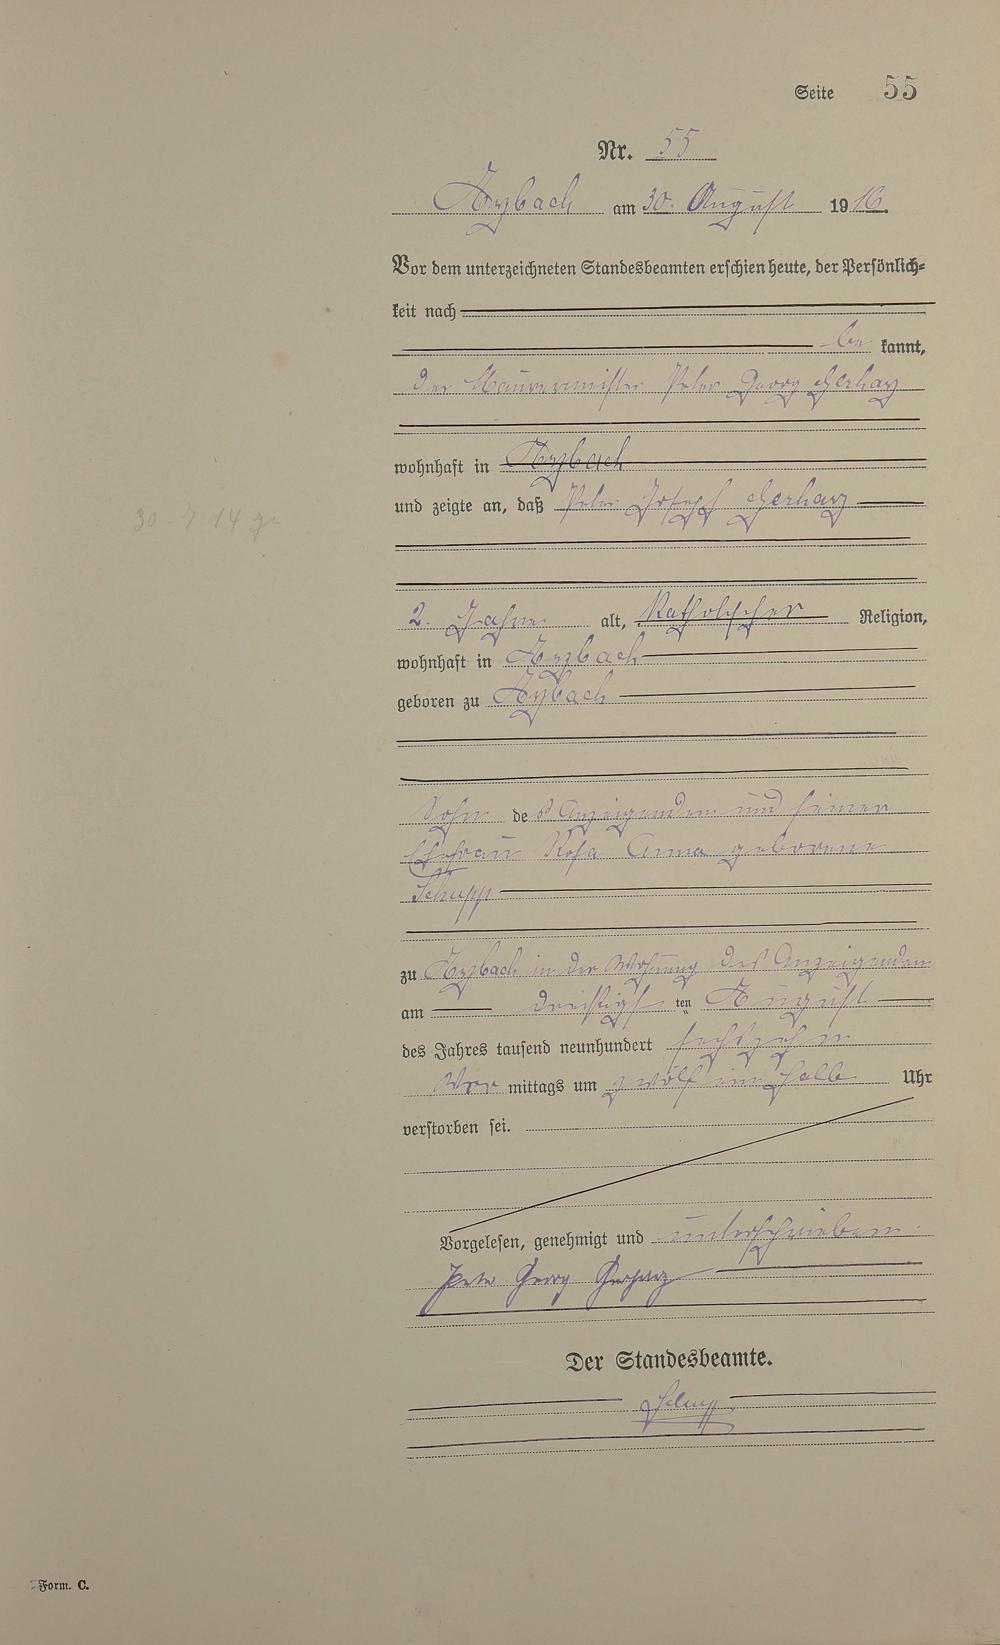 Seite 55
Nr. 55
Arzbach am 30. August 1916.
Vor dem unterzeichneten Standesbeamten erschien heute, der Persönlich-
keit nach
be kannt,
der Maurermeister Peter Georg Gerharz
wohnhaft in Arzbach
und zeigte an, daß Peter Joseph Gerharz
30. 7 14
2. Jahre alt, Katholischer Religion,
wohnhaft in Arzbach
geboren zu Arzbach
Sohn des Anzeigenden und seiner
Ehefrau Rosa Anna geborene
Schupp
zu Arzbach in der Wohnung des Anzeigenden
am dreißigsten August
des Jahres tausend neunhundert sechszehn
Vor mittags um zwölf ein halb Uhr
verstorben sei.
Vorgelesen, genehmigt und unterschrieben.
Peter Georg Gerharz
Der Standesbeamte.
Form. C.